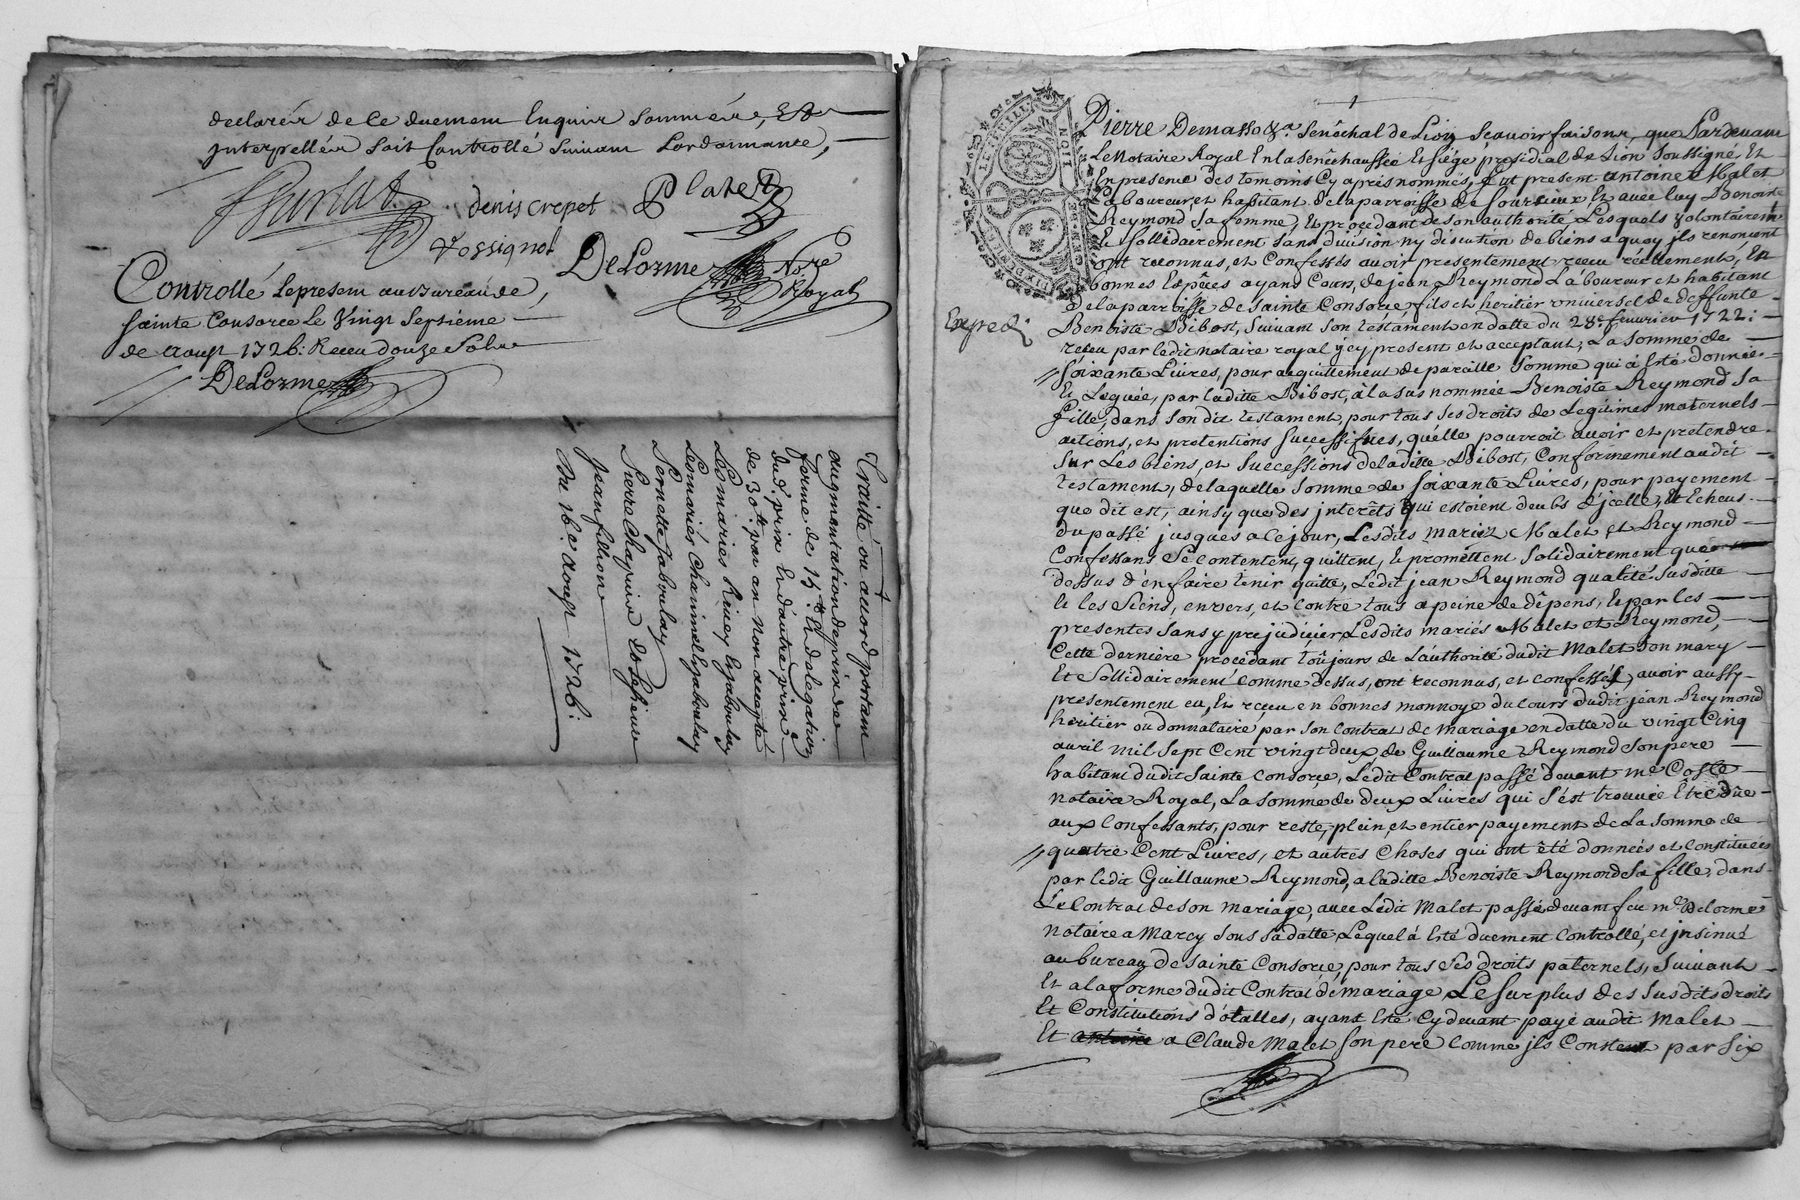 declarér de ce duement Enquis Sommées, Et
jnterpellér Soit Controllé Suivant Lordonnance,
denis crepet P latet
Vossignol
DeLorme No.re
Royal
Controllé Lepresent aubureau de
Sainte Consorce Le Vingt Septième
de aoust 1726: Receu douze Sols
DeLorme
Traitté ou acord portant
augmentation de prix de
ferme de 15.tt Et delegation
dud. prix Et d'autre prix
de 30.tt par an Non accepté
Les mariés Rivey Et Jaboulay
Les mariés Chanimel Et Jaboulay
Pernette Jaboulay
Pierre Chapuize Et Lesieur
Jean fillion
Du 16.e aoust 1726:
Pierre Demasso &.a Senéchal de Lion Sçavoir faisons, que Pardevant
Le Notaire Royal En la Senêchaussée Et Siége presidial de Lion Soussigné, Et
En presence des temoins Cy apres nommés, fut present antoine Malet
Laboureur et habitant de la parroisse de Soursieux Et avec luy Benoiste
Reymond Sa femme, Et procedant de son authorité Lesquels volontairem.t
Et Sollidairement Sans division ny discution de biens a quoy jls renoncent
ont reconnus, et Confessés avoir presentement receu réellement, En
bonnes Espêces ayand Cours, de jean Reymond Laboureur et habitant
de la parroisse de Sainte Consorce fils et heritier universel de deffunte
Expedi
Benoiste Bibost, Suivant Son testament en datte du 28.e fevurier 1722:
receu par ledit notaire royal y cy present et acceptant, La Somme de
Soixante Livres, pour acquittement de pareille Somme qui à Esté donnée
Et Leguée, par laditte Bibost, à la sus nommée Benoiste Reymond Sa
fille, dans Son dit testament, pour tous Ses droits de Legitimes maternels
actions, et pretentions Successives, qu'elle pourroit avoir et pretendre
Sur Les biens, et Successions de laditte Bibost, Conformement audit
testament, de laquelle Somme de Soixante Livres, pour payement
que dit est, ainsy que des jnterets qui estoient deubs d'jcelle, Et Echeus
du passé jusques a ce jour, Lesdits mariez Malet, et Reymond
Confessans Se contentent, quittent, Et promettent Solidairement que
dessus d'en faire tenir quitte, Ledit jean Reymond qualité Susditte
Et les Siens, envers, et contre tous a peine de dêpens, Et par les
presentes Sans y prejudicier, Lesdits mariés Malet et Reymond,
Cette derniere procedant toûjours de L'authorité dudit Malet Son mary
Et Sollidairement Comme dessus, ont reconnus, et confessés, avoir aussy
presentement eu, Et receu en bonnes monnoye du cours dudit jean Reymond
heritier ou donnataire par son Contrat de mariage en datte du vingt Cinq
avril mil Sept Cent vingt deux, de Guillaume Reymond Son pere
habitant dudit Sainte Consorce, Ledit Contrat passé devant me Coste
notaire Royal, La Somme de deux Livres qui S'est trouvée Etre due
aux Confessants, pour reste, plein, et entier payement de La Somme de
quatre Cent Livres, et autres Choses qui ont été données et Constituées
par ledit Guillaume Reymond, a laditte Benoiste Reymond Sa fille, dans
Le Contrat de son mariage, avec Ledit Malet passé devant feu m.e Delorme
notaire a Marcy Sous Sa datte, Lequel à Esté duement Controllé, et jnsinué
au bureau de Sainte Consorce, pour tous Ses droits paternels, Suivant
Et a la forme dudit Contrat de mariage, Le Surplus des Susdits droits
Et Constitutions dotalles, ayant Esté Cy devant payé audit Malet
Et a Claude Malet Son pere Comme jls Constent par Six